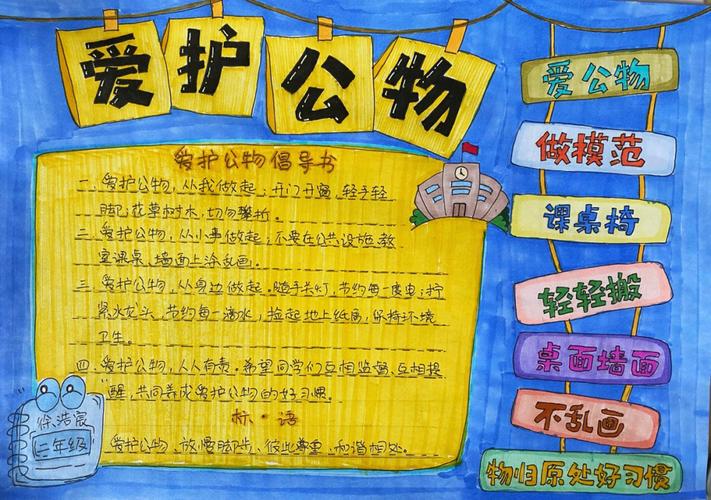 爱护公物
爱护公物倡导书
一、爱护公物，从我做起；开门开窗，轻手轻
脚；花草树木，切勿攀折。
二、爱护公物，从小事做起；不要在公共设施、教
室课桌、墙面上涂乱画。
三、爱护公物，从身边做起。随手关灯，节约每一度电；拧
紧水龙头，节约每一滴水；捡起地上纸屑，保持环境
卫生。
四、爱护公物，人人有责。希望同学们互相监督、互相提
醒，共同养成爱护公物的好习惯。
标·语
爱护公物、放慢脚步、彼此尊重、和谐相处。
爱公物
做模范
课桌椅
轻轻搬
桌面墙面
不乱画
物归原处好习惯
徐浩宸
二年级